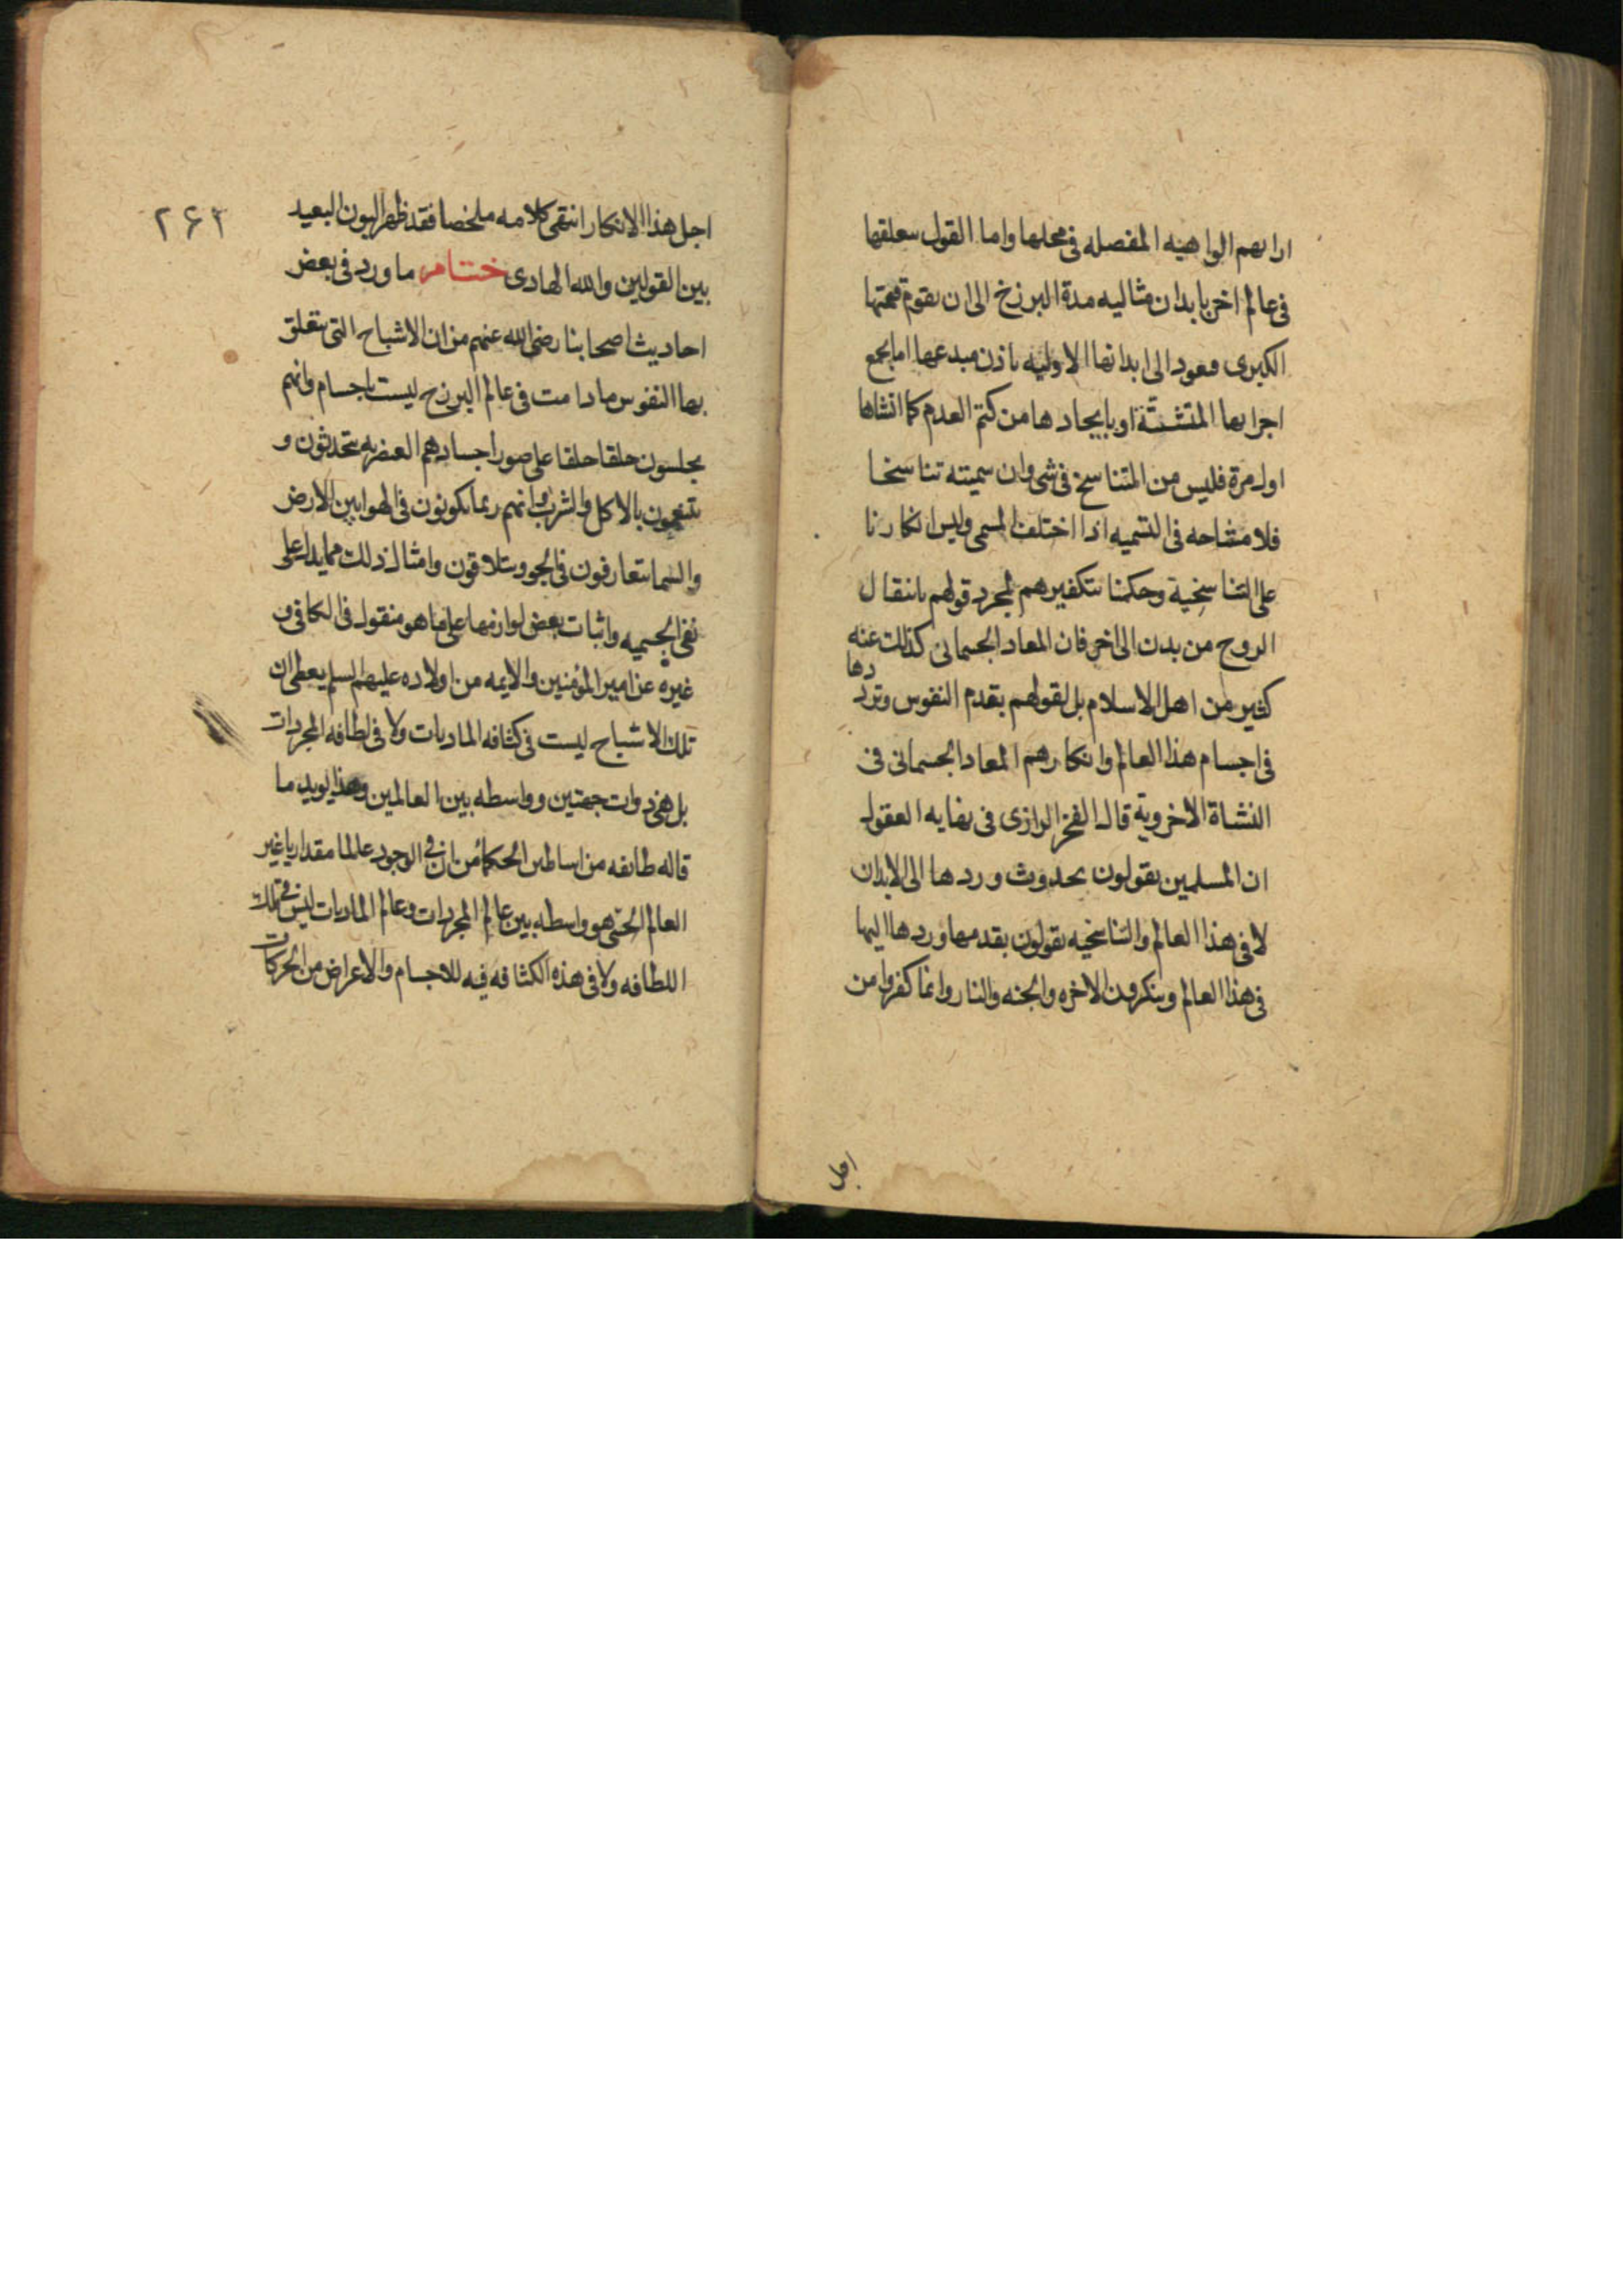 ارابهم الواهيه المفصله فى محلها واما القول بتعلقها
فى عالم اخر بابدان مثاليه مدة البرزخ الى ان تقوم قيمتها
الكبرى فتعود الى ابدانها الاوليه باذن مبدعها اما بجمع
اجزايها المتشتتة او بايجادها من كتم العدم كما انشاها
اول مرة فليس من التناسخ فى شى وان سميته تناسخا
فلا مشاحه فى التسميه اذا اختلف المسمى وليس انكارنا
على التناسخية وحكمنا بتكفيرهم لمجرد قولهم بانتقال
الروح من بدن الى اخر فان المعاد الجسمانى كذلك عنه
كثير من اهل الاسلام بل لقولهم بقدم النفوس وتردّدها
فى اجسام هذا العالم وانكارهم المعاد الجسمانى فى
النشاة الاخروية قال الفخر الرازى فى نهايه العقول
ان المسلمين يقولون بحدوث وردها الى الابدان
لا فى هذا العالم والتناسخيه يقولون بقدمها وردها اليها
فى هذا العالم وينكرون الاخره والجنه والنار وانما كفروا من
اجل
٢۶٢
اجل هذا الانكار انتهى كلامه ملخصا فقد ظهر البون البعيد
بين القولين والله الهادى ختام ما ورد فى بعض
احاديث اصحابنا رضى الله عنهم من ان الاشباح التى يتعلق
بها النفوس ما دامت فى عالم البرزخ ليست باجسام وانهم
يجلسون حلقا حلقا على صور اجسادهم العنصريه يتحدثون و
يتنعمون بالاكل والشرب وانهم ربما يكونون فى الهوا بين الارض
والسما يتعارفون فى الجو ويتلاقون وامثال ذلك مما يدل على
نفى الجسميه واثبات بعض لوازمها على ما هو منقول فى الكافى و
غيره عن امير المؤمنين والايمه من اولاده عليهم السلم يعطى ان
تلك الاشباح ليست فى كثافه الماديات ولا فى لطافه المجردات
بل هى ذوات جهتين وواسطه بين العالمين وهذا يويد ما
قاله طايفه من اساطين الحكماء من ان فى الوجود عالما مقداريا غير
العالم الحسى هو واسطه بين عالم المجردات وعالم الماديات ليس فى تلك
اللطافه ولا فى هذه الكثافه فيه للاجسام والاعراض من الحركات